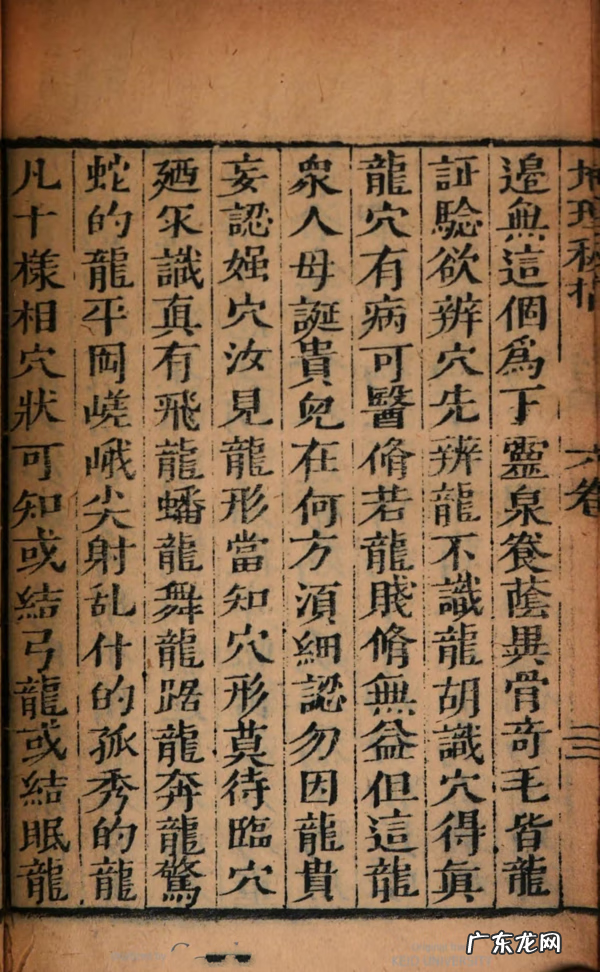 地理秘指 六卷 三
邊無這個為下靈泉養蔭異骨奇毛皆龍
証驗欲辨穴先辨龍不識龍胡識穴得眞
龍穴有病可醫脩若龍賤脩無益但這龍
衆人母誕貴兒在何方湏細認勿因龍貴
妄認𡜍穴汝見龍形當知穴形莫待臨穴
廼罙識真有飛龍蟠龍舞龍踞龍奔龍驚
蛇的龍平岡嵯峨尖射乱什的孤秀的龍
凡十樣相穴狀可知或結弓龍或結眠龍
广东龙网